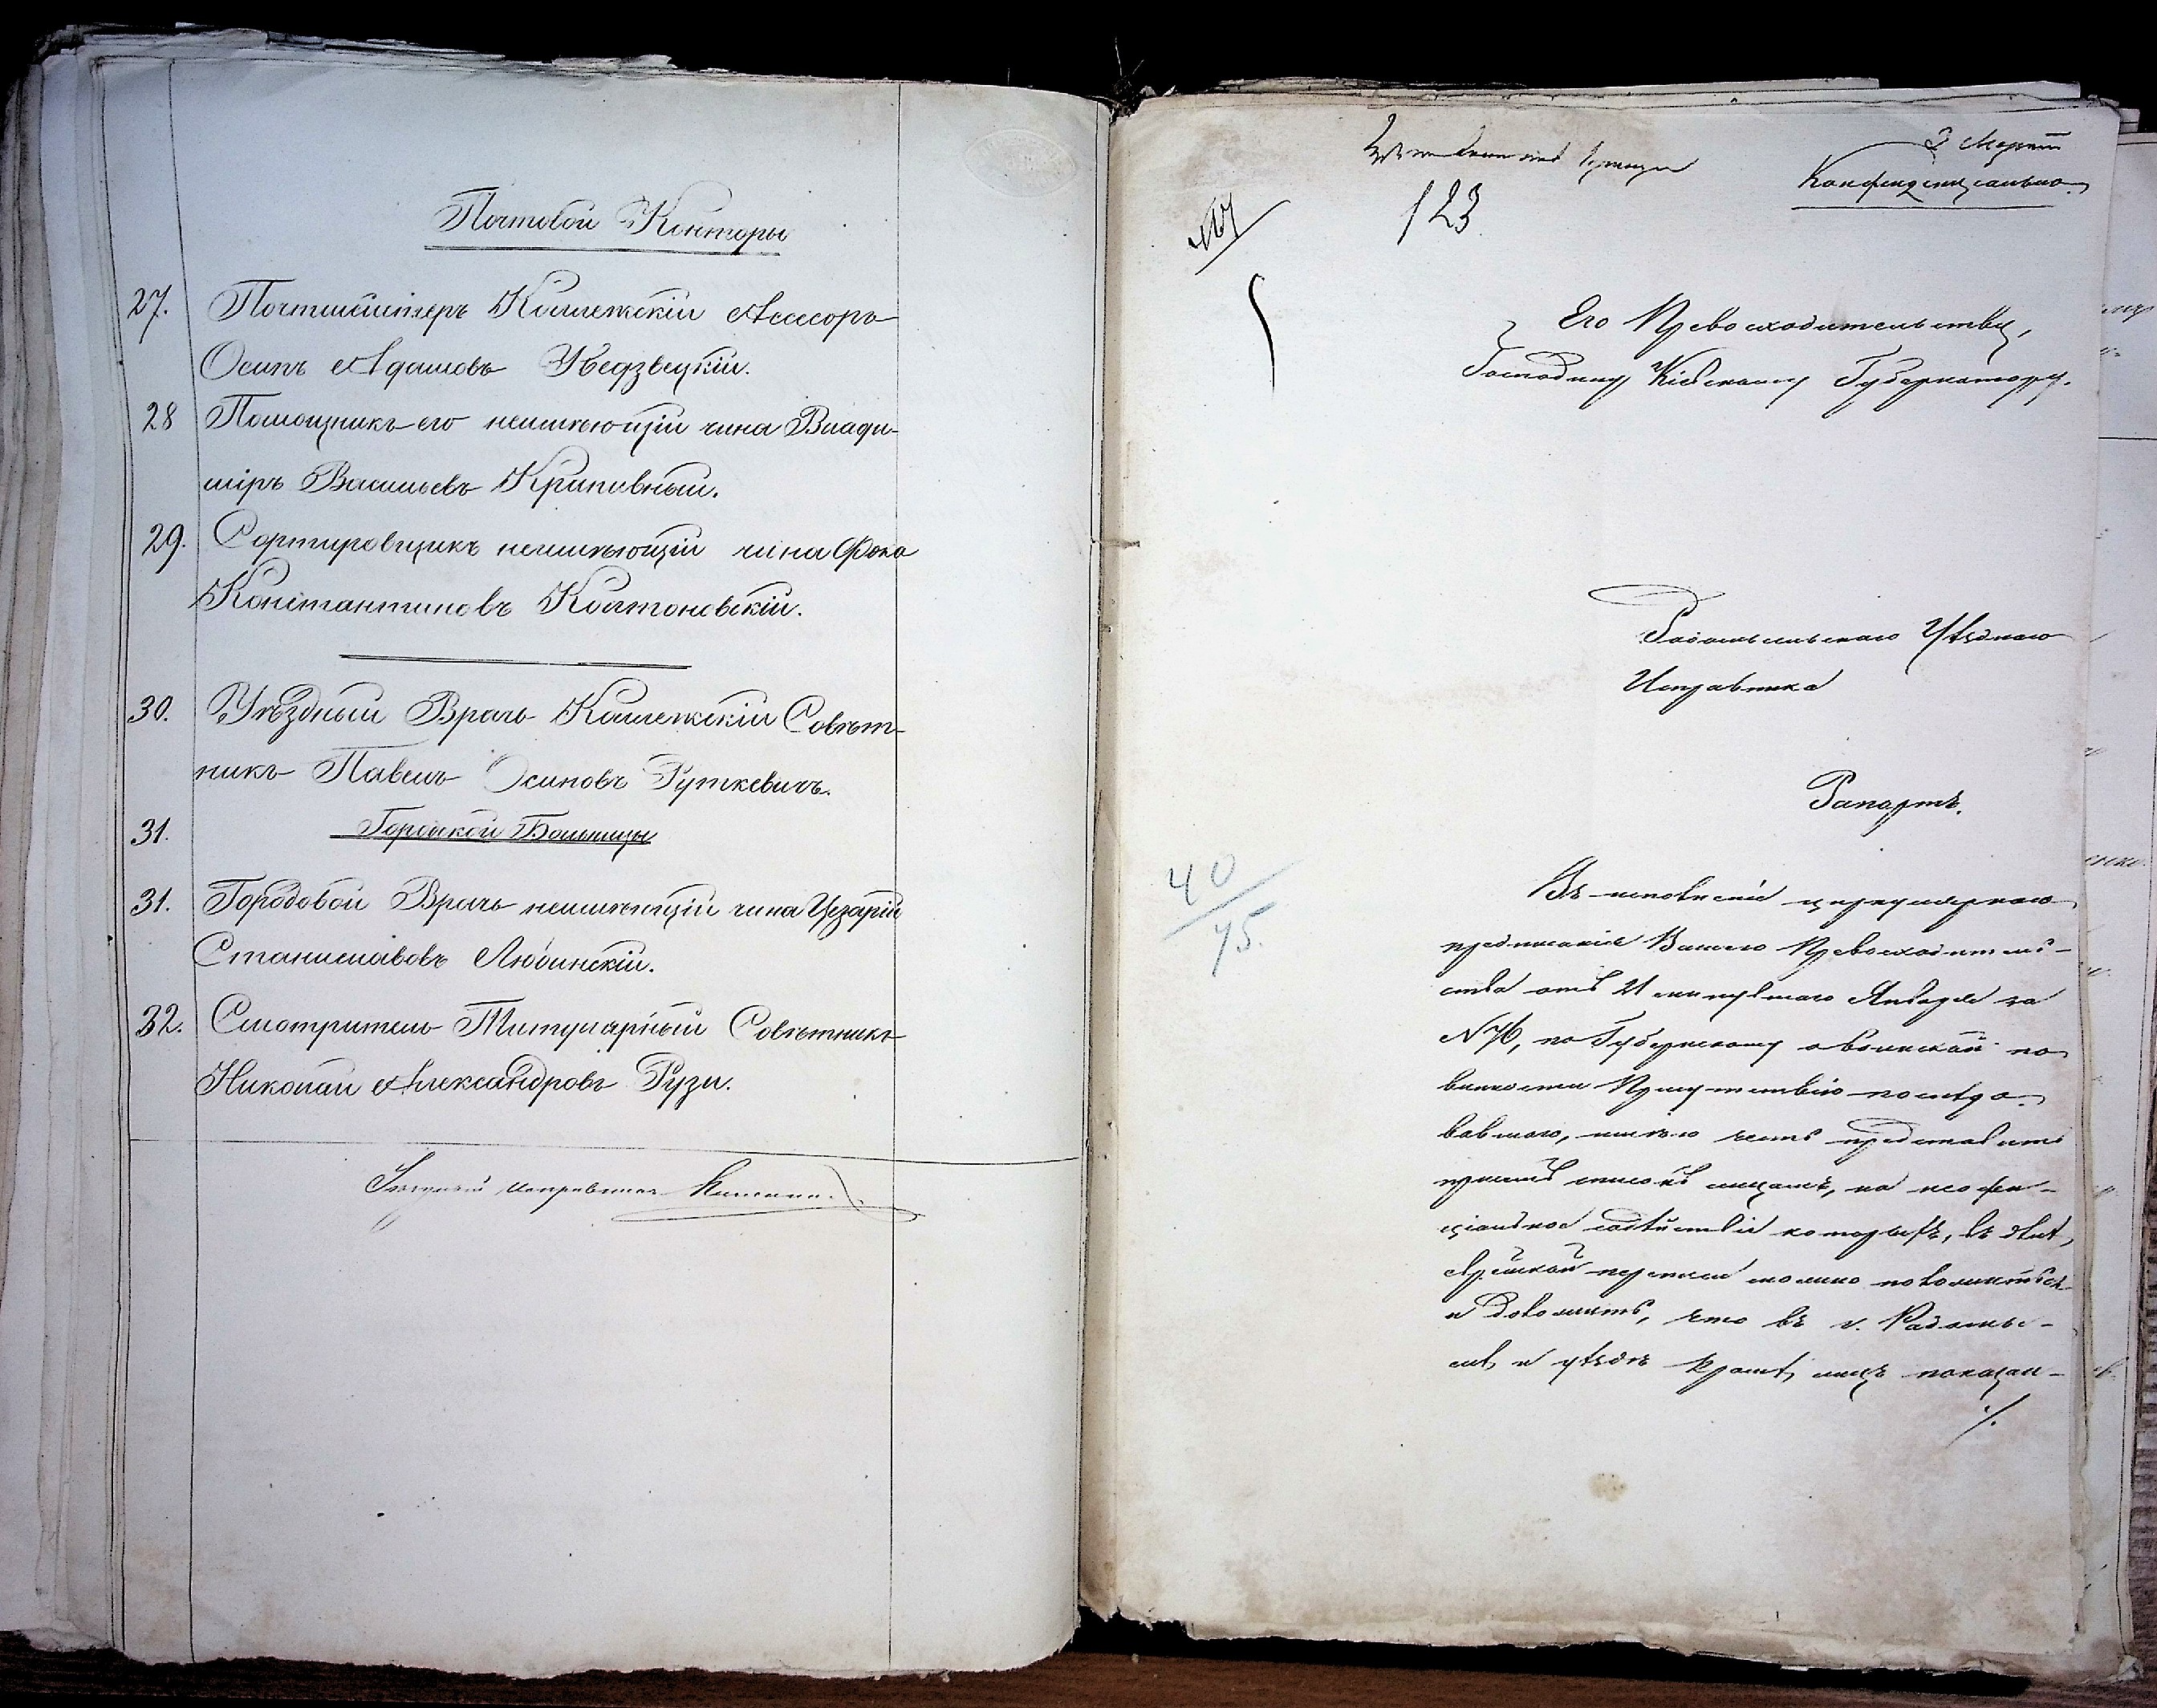 Почтовой Конторы
27. Почтмейстеръ Коллежскій Ассесоръ
Осипъ Адамовъ Недзвецкій.
28 Помощникъ его неимѣющій чина Влади-
міръ Васильевъ Крапивный.
29. Сортировщикъ неимѣющій чина Фока
Константиновъ Колтоновскій.
30. Уѣздный Врачъ Коллежскій Совѣт-
никъ Павелъ Осиповъ Руткевичъ.
31. Городской Больницы
31. Городовой Врачъ неимѣющій чина Цезарій
Станиславовъ Любинскій.
32. Смотритель Титулярный Совѣтникъ
Николай Александровъ Рузи.
Уѣздный Исправникъ
2 Марта
Конфиденціально.
123
Его Превосходительству,
Господину Кіевскому Губернатору.
Радомысльскаго Уѣзднаго
Исправника
Рапортъ.
40
75.
Въ исполненіе циркулярнаго
предписанія Вашего Превосходитель-
ства отъ 21 минувшаго Января за
N 76, по Губернскому о воинской по
винности Присутствію послѣдо-
вавшаго, имѣю честь представить
при семъ списокъ лицамъ, на неофи-
ціальное содѣйствіе которыхъ, въ дѣлѣ
еврейской переписи можно положиться
и доложить, что въ г. Радомыс-
лѣ и уѣздѣ кромѣ лицъ показан-